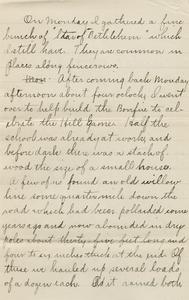 On Monday I gathered a fine
bunch of "Star of Bethlehem" which
I still have. They are common in
place along fencerows.
After coming back Monday
afternoon about four oclock, I went
over to help build the Bonfire to cel-
ebrate the Hill Game. Half the
school was already at work, and
before dark there was a stack of
wood the size of a small house.
A few of us found an old willow
line some quarter mile down the
road which had been pollarded some
years ago and now abounded in dry
poles about thirty five feet long and
four to six inches thick at the end. Of
these we hauled up several loads
of a dozen each. As it rained both